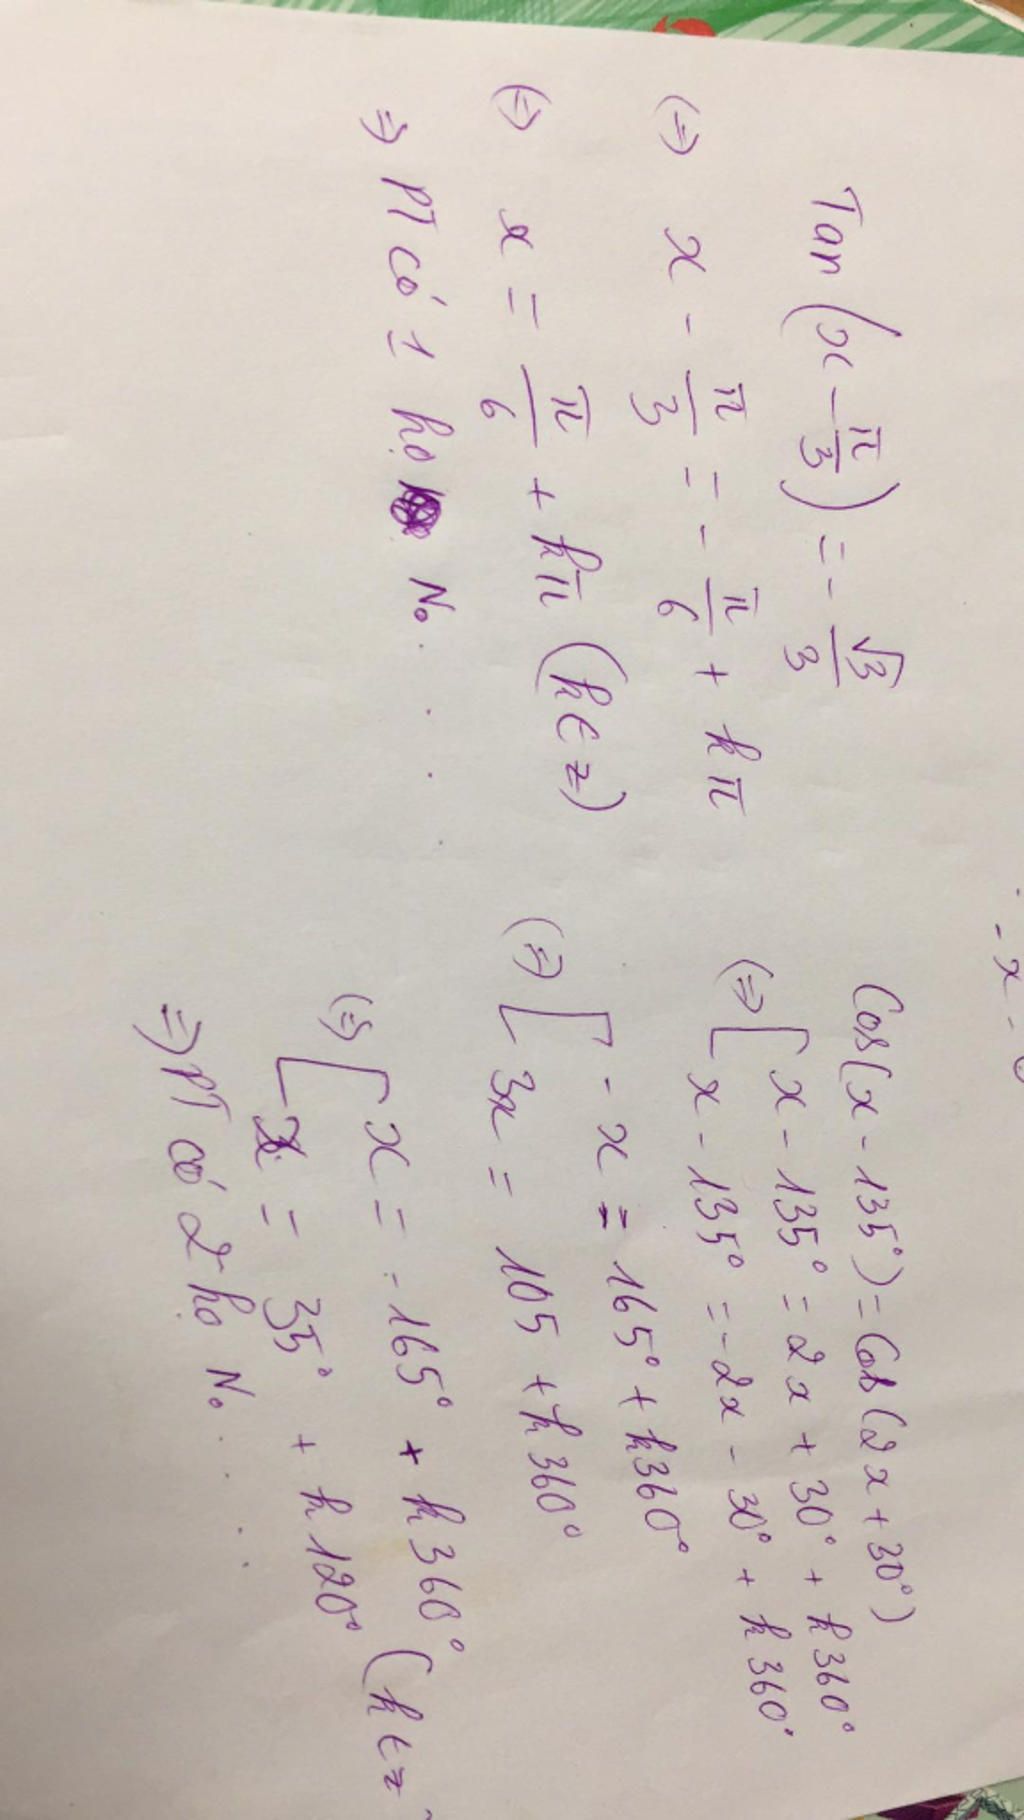 Tan(x - π/3) = - √3/3
(=) x - π/3 = - π/6 + kπ
(=) x = π/6 + kπ (k ∈ z)
=) PT có 1 họ No...
Cos(x - 135°) = Cos(2x + 30°)
(=) [ x - 135° = 2x + 30° + k360°
x - 135° = -2x - 30° + k360°
(=) [ - x = 165° + k360°
3x = 105 + k360°
(=) [ x = -165° + k360° (k ∈ z
x = 35° + k120°
=) PT có 2 họ No...